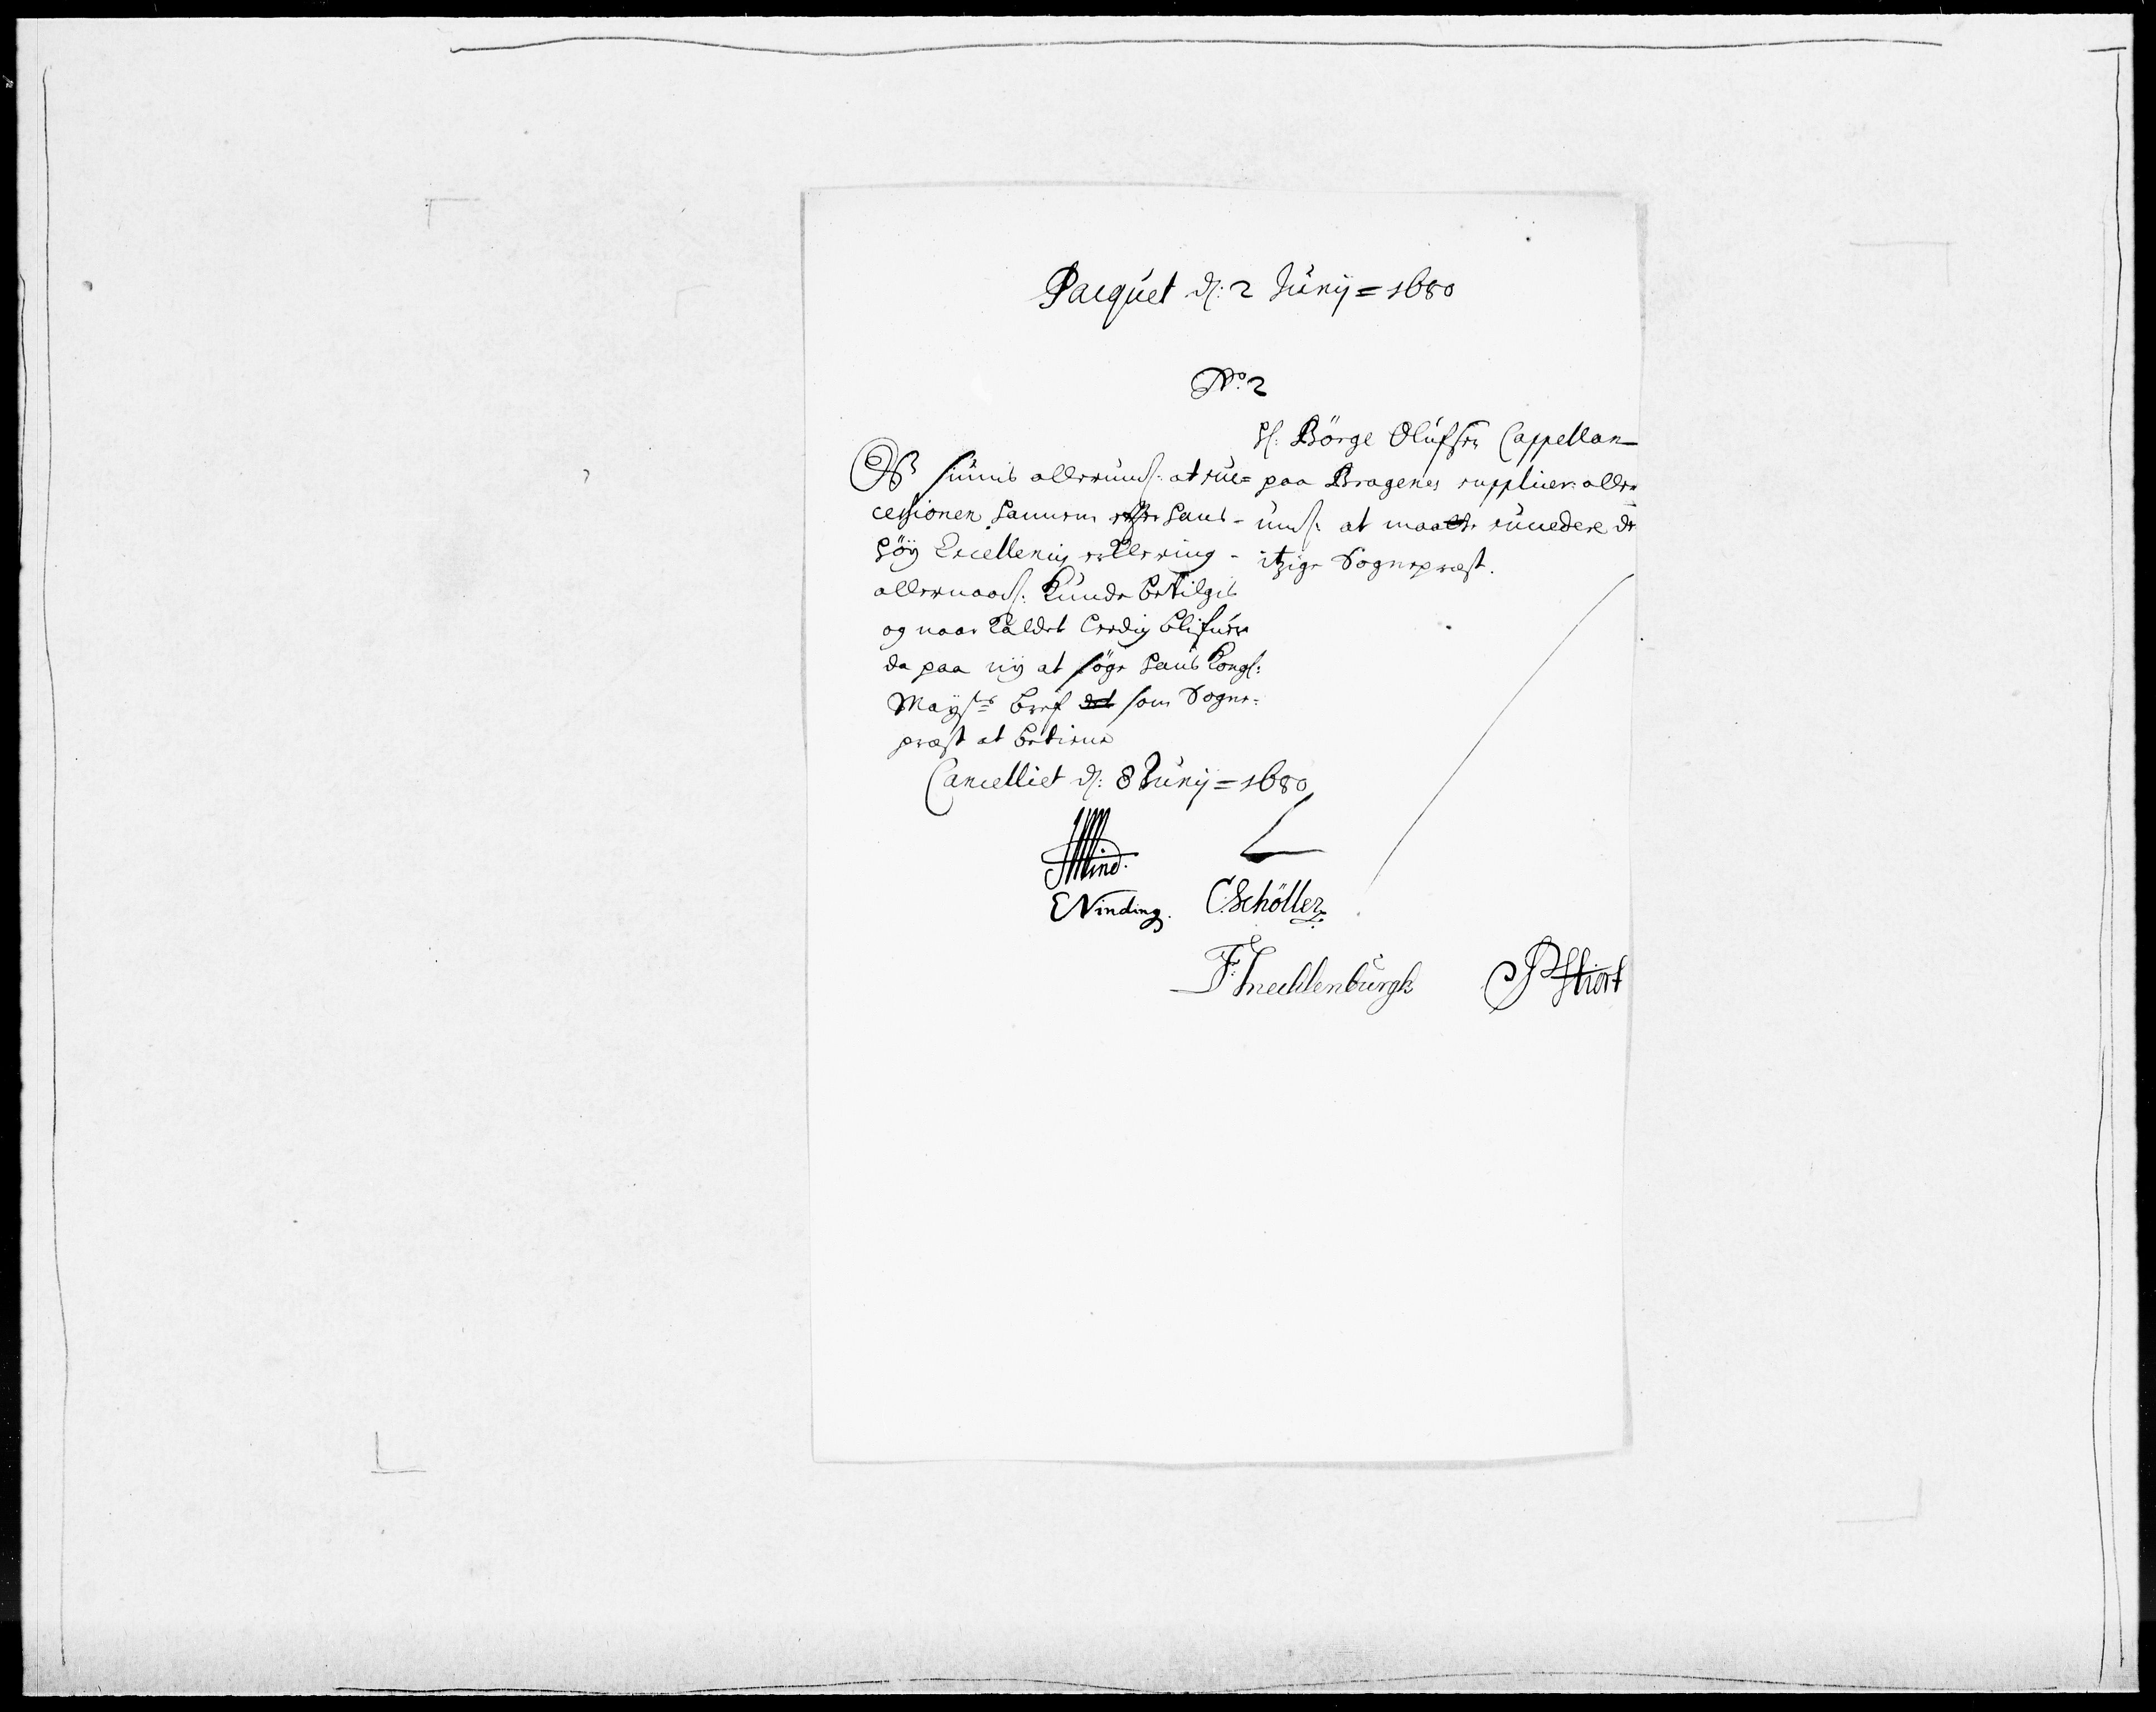 Pacquet d: 2 Junij = 1680
No. 2
H: Börge Olufsen Cappellan
paa Bragenes supplicer: aller
und: at maatte succedere de
itzige Sognepræst.
Os siünis allerund: at suc=
cessionen hannem efter hans
höÿ Excellentz erklering
allernaad: kunde bevilgis
og naar kaldet ledig blifuer
da paa nÿ at söge hans kongl:
Maÿsts bref det som Sogne=
præst at betiene
Cancelliet d: 8 Junij = 1680
Wind.
L
ENinding.
C. Schöller
F: Mecklenburgk
P Hiort